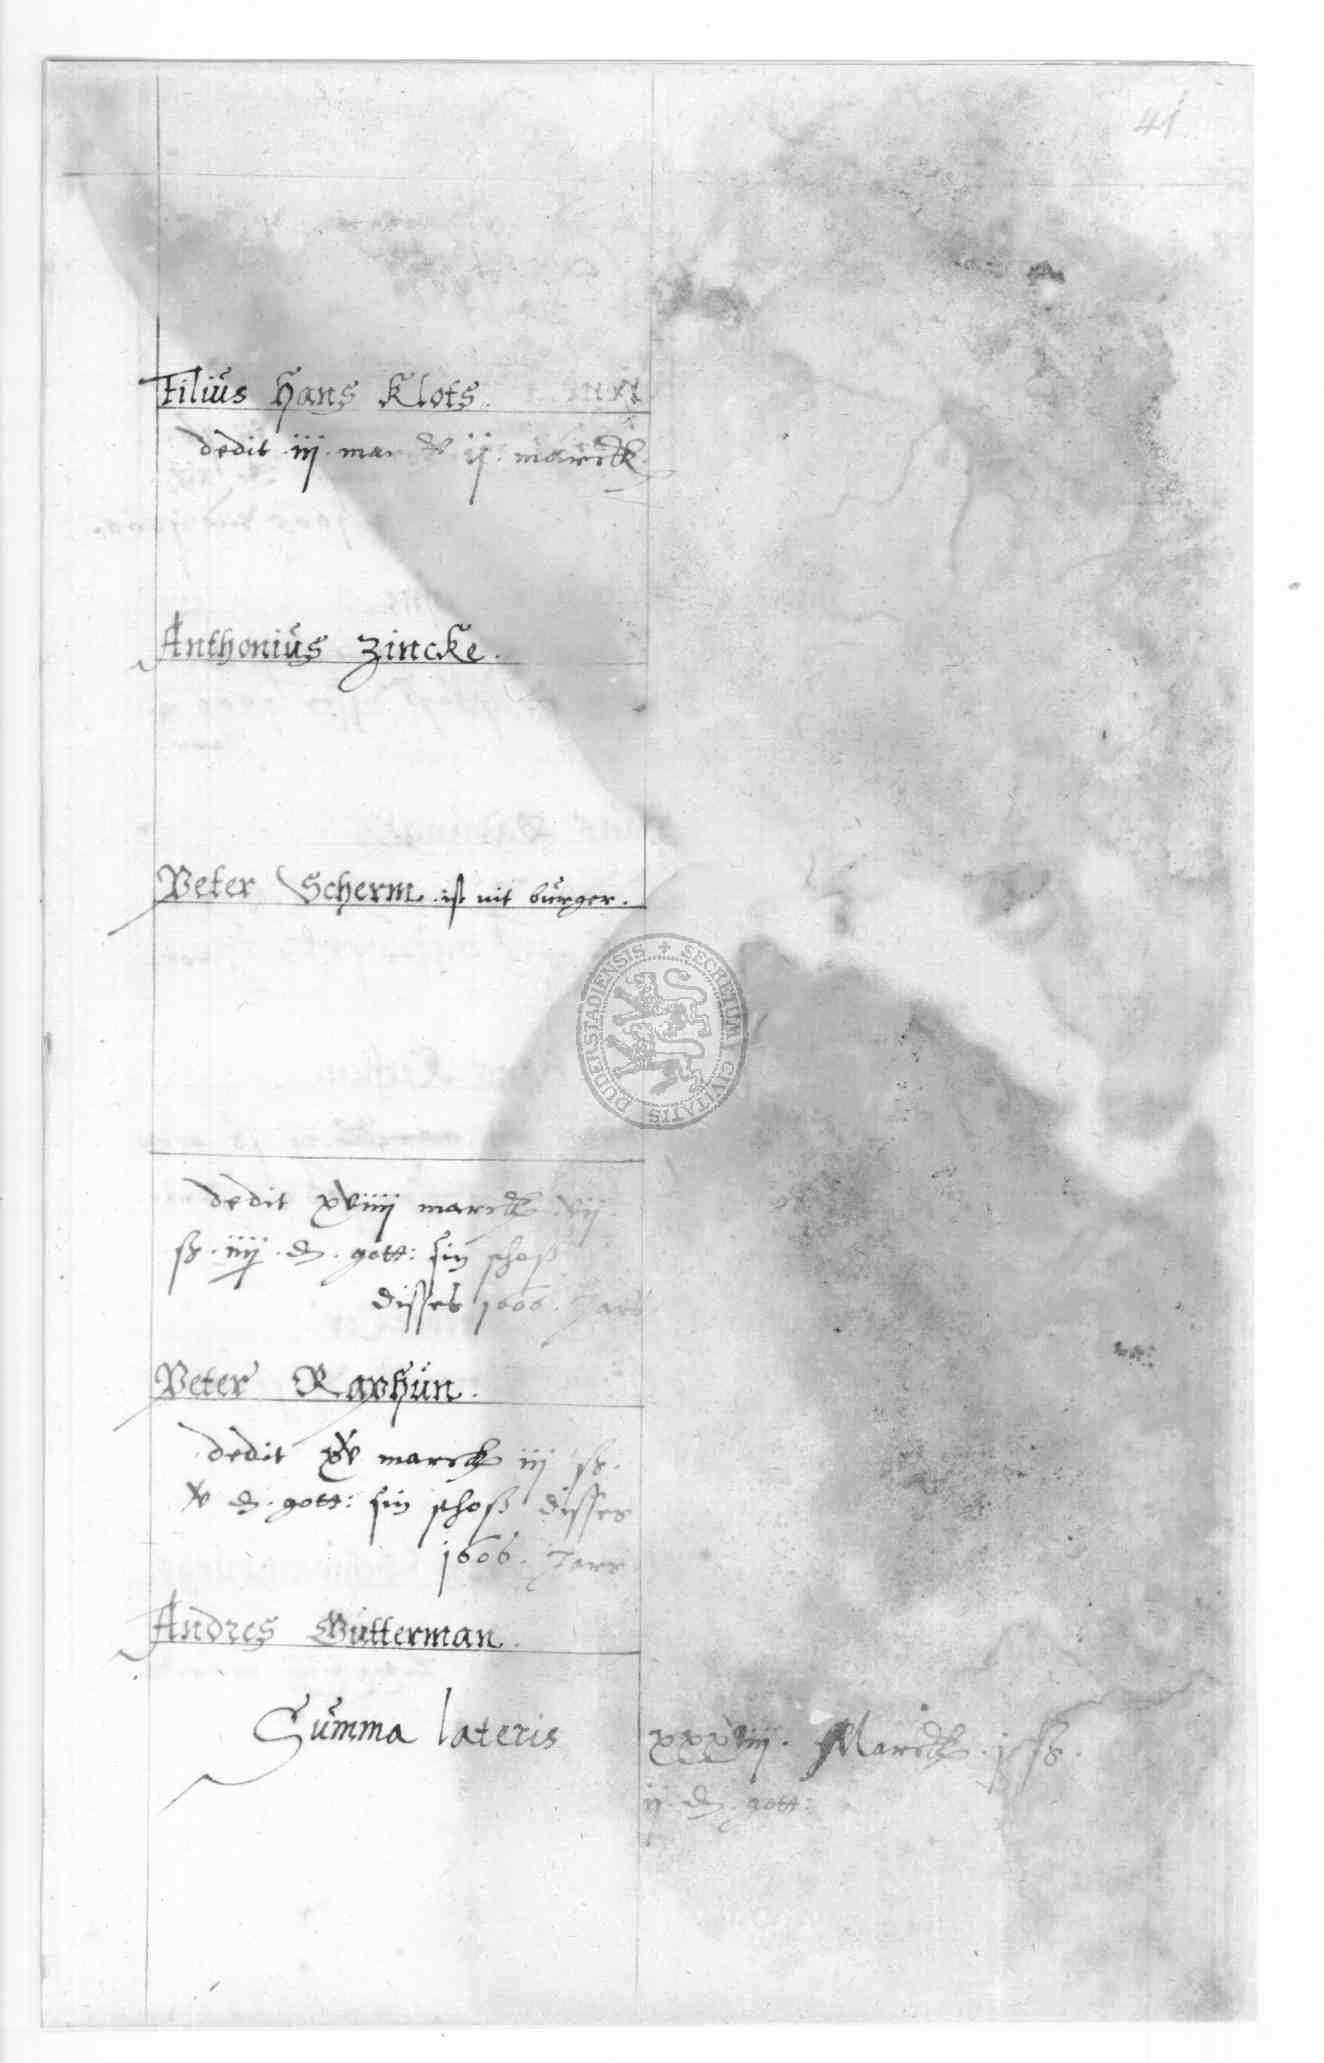 41
Filius Hans Klots.
dedit .iij. mar v ij. marck.
Anthonius Zincke.
Peter Scherm. ist nit burger.
SECRETUM CIVITATIS DUDERSTADIENSIS
dedit xviiij marck vij
ß. iiij. d. gott: sin schoß
disses 1606. Jars
Peter Raphun.
dedit xv marck iij ß.
v d. gott: sin schoß disses
1606. Jars
Andres Gutterman.
Summa lateris xxxviiij. Marck. j ß.
ij. d. gott: